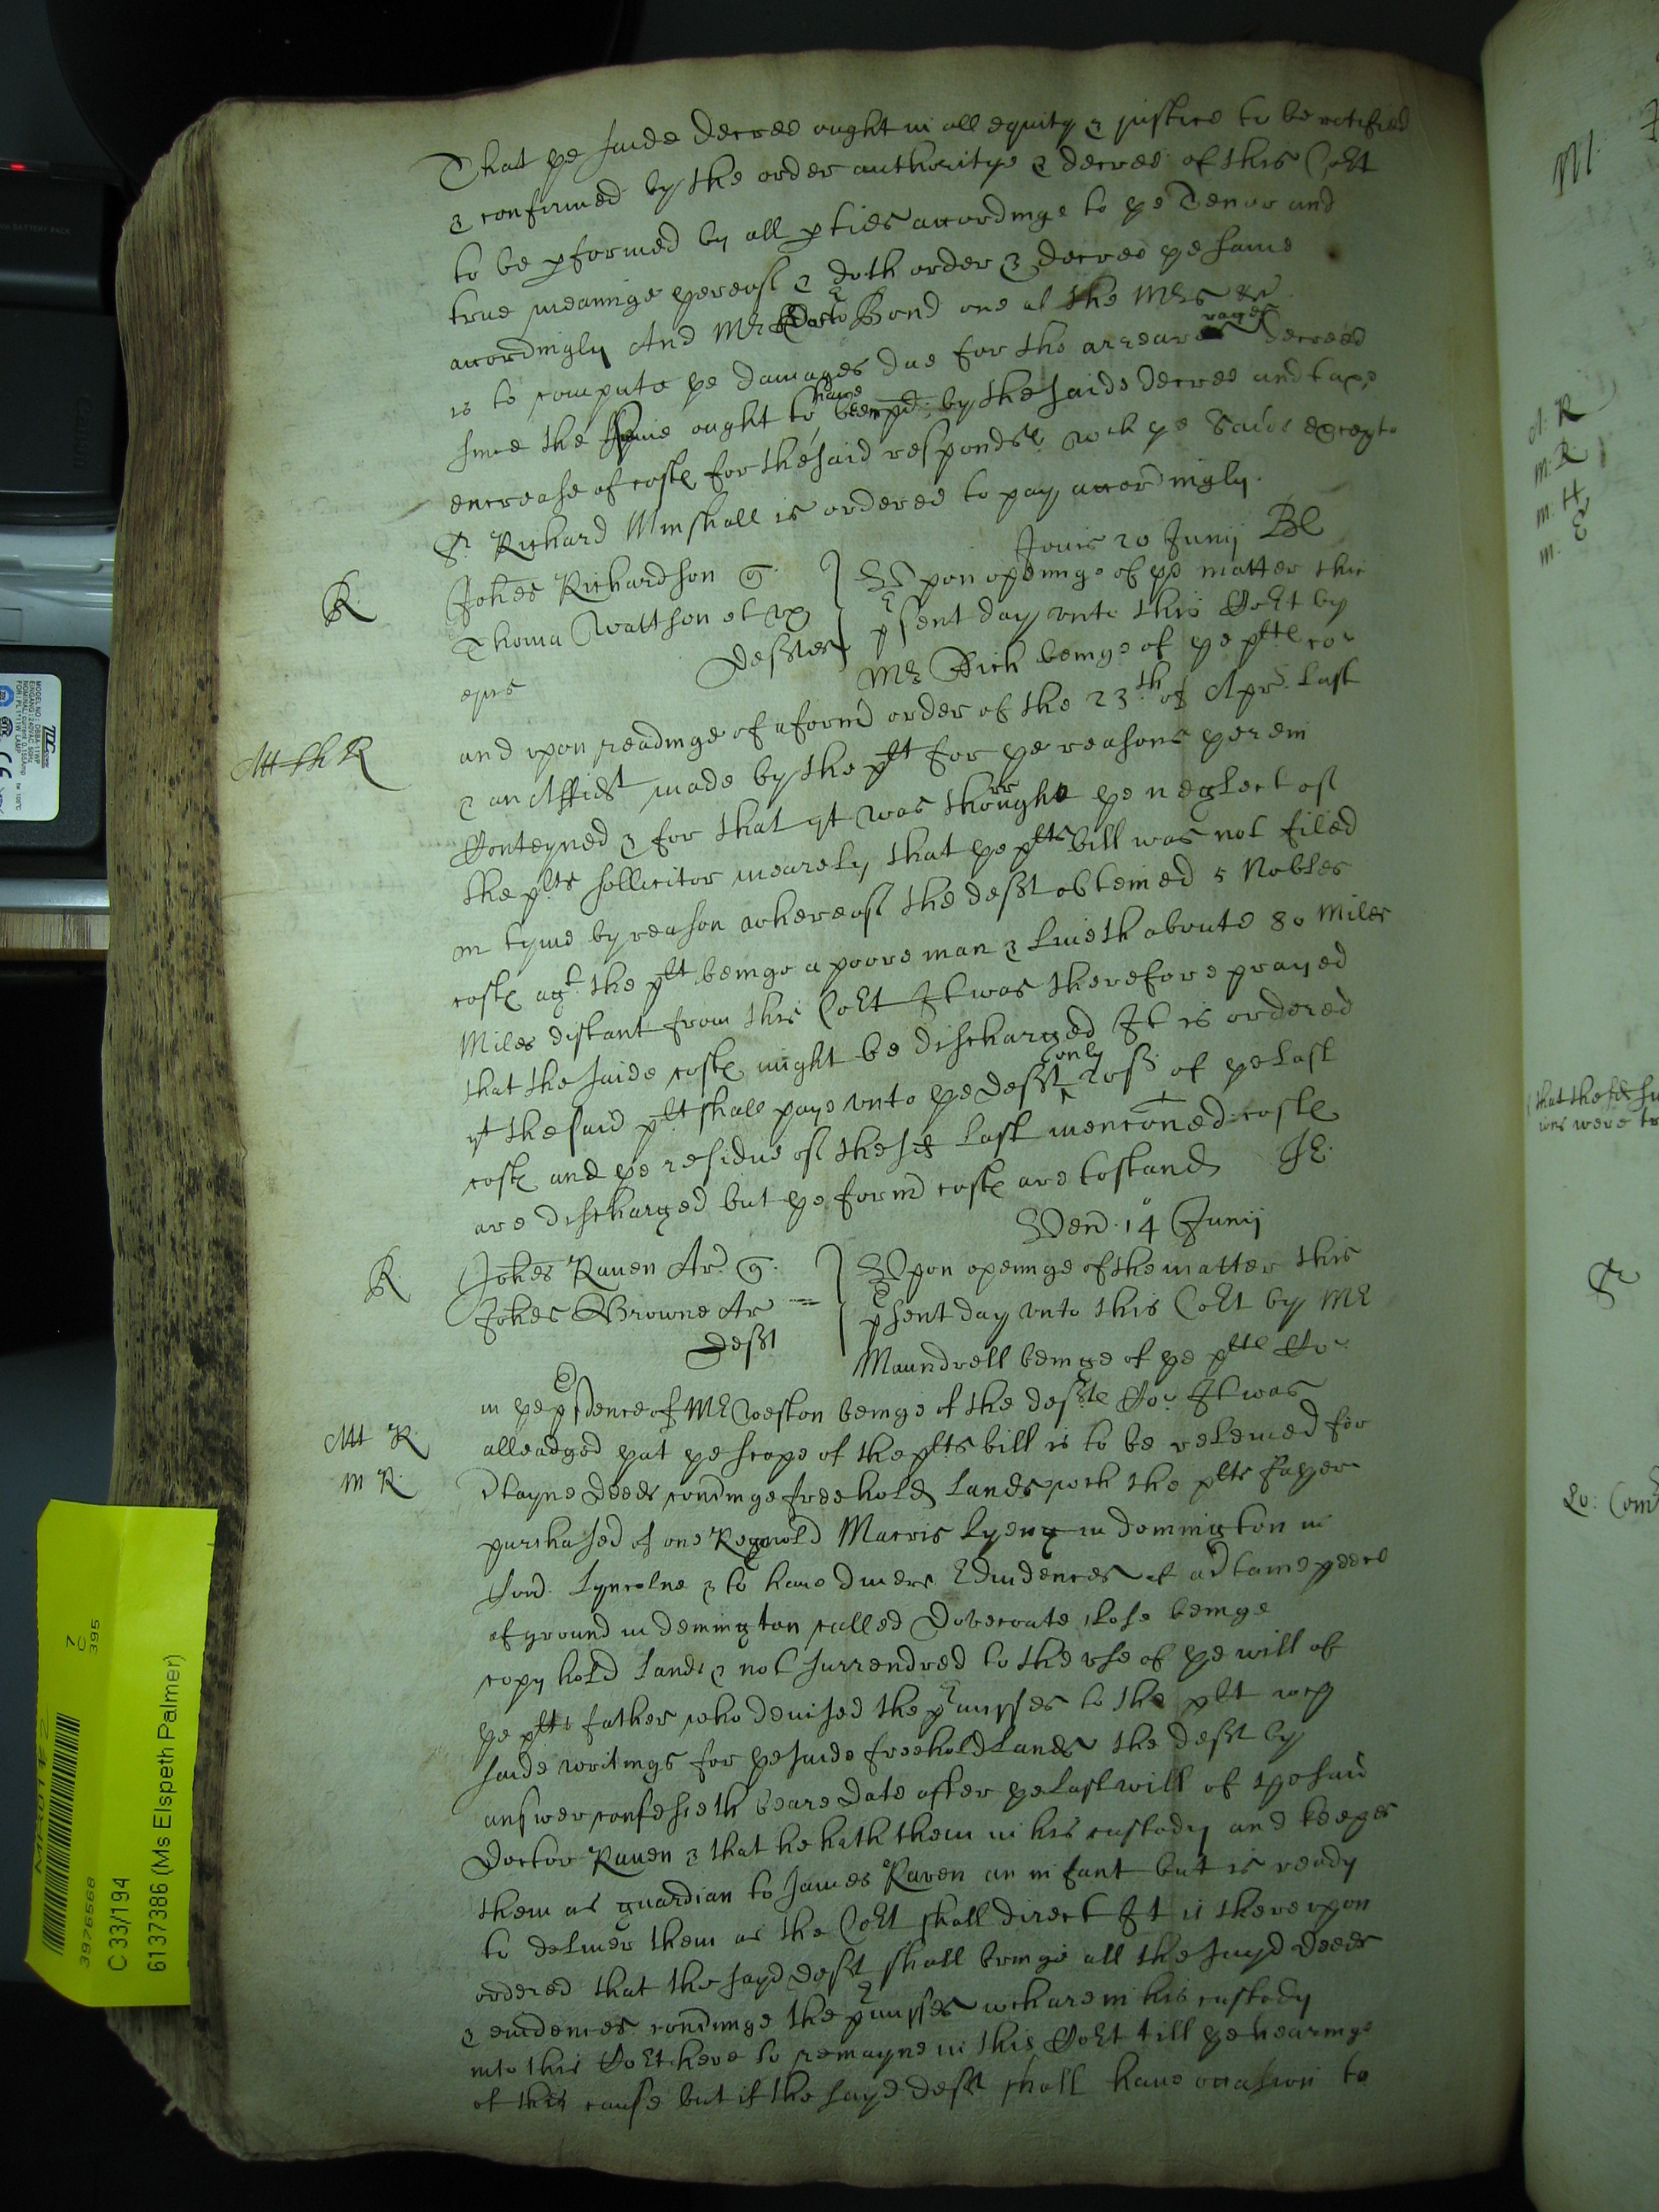 That ye saide decree ought in all equity & justice to be ratified
& confirmed by the order authoritye & decree of this Co:rt
to be pformed by all pties accordinge to ye Tenor and
true meaninge yereof & doth order & decree ye same
accordingly And Mr Docto:r Bond one of the Mrs &c
is to compute ye damages due for the arrearages decreed
since the same ought to have been pd by the saide decree and taxe
encrease of costs for the said respondts wch ye saide excepte
Sr Richard Minshall is ordered to pay accordingly.
Jovis 20 Junij
R
Johes Richardson q.
Thoma Wattson et ux
ejus
Deftes
Upon openinge of ye matter this
psent day unto this Co:rt by
Mr Rich beinge of ye plts co:
and upon readinge of a form:r order of the 23th of Apr. last
& an Affid:t made by the plt for ye reasons yerein
Conteyned & for that yt was through ye neglect of
the plts sollicitor meerely that ye plts bill was not filed
in tyme by reason whereof the deft obteined 5 Nobles
costs agt the plt beinge a poore man & liveth aboute 80 Miles
Miles distant from this Co:rt It was therefore prayed
that the saide costs might be discharged It is ordered
yt the said plt shall paye unto ye deft only 20s of ye last
costs and ye residue of the sd last menconed costs
are discharged but ye form:r costs are to stand
Ven. 14 Junij
R
Johes Raven Ar. q.
Johes Browne Ar
Deft
Upon openinge of the matter this
psent day unto this Co:rt by Mr
Maundrell beinge of ye plts Co:
in ye psence of Mr Weston beinge of the defts Co: It was
Att R
M R
alleadged yat ye scope of the plts bill is to be releived for
Ctayne deeds concninge freehold lands wch the plts fayer
purchased of one Regnold Marris lyeng in Donnington in
Com. Lyncolne & to have divers Evidences of a Ctaine peece
of ground in Donnington called Dovecoate close beinge
copyhold lands & not surrendred to the use of ye will of
ye plts father who devised the pmisses to the plt wch
saide writings for ye saide freehold lands the deft by
answer confesseth beare date after ye last will of the said
Doctor Raven & that he hath them in his custody and keepes
them as guardian to James Raven an infant but is ready
to deliver them as the Co:rt shall direct It is thereupon
ordered that the sayd deft shall bringe all the sayd deeds
& evidences concninge the pmisses wch are in his custody
into this Co:rt here to remayne in this Co:rt till ye hearinge
of this cause but if the sayd deft shall have occasion to
3976568
C 33/194
6137386 (Ms Elspeth Palmer)
7
C
395